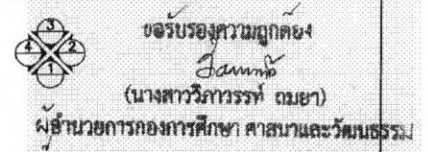 ขอรับรองความถูกต้อง
3
4 2
1
(นางสาววิภาวรรท์ ถมยา)
ผู้อำนวยการกองการศึกษา ศาสนาและวัฒนธรรม